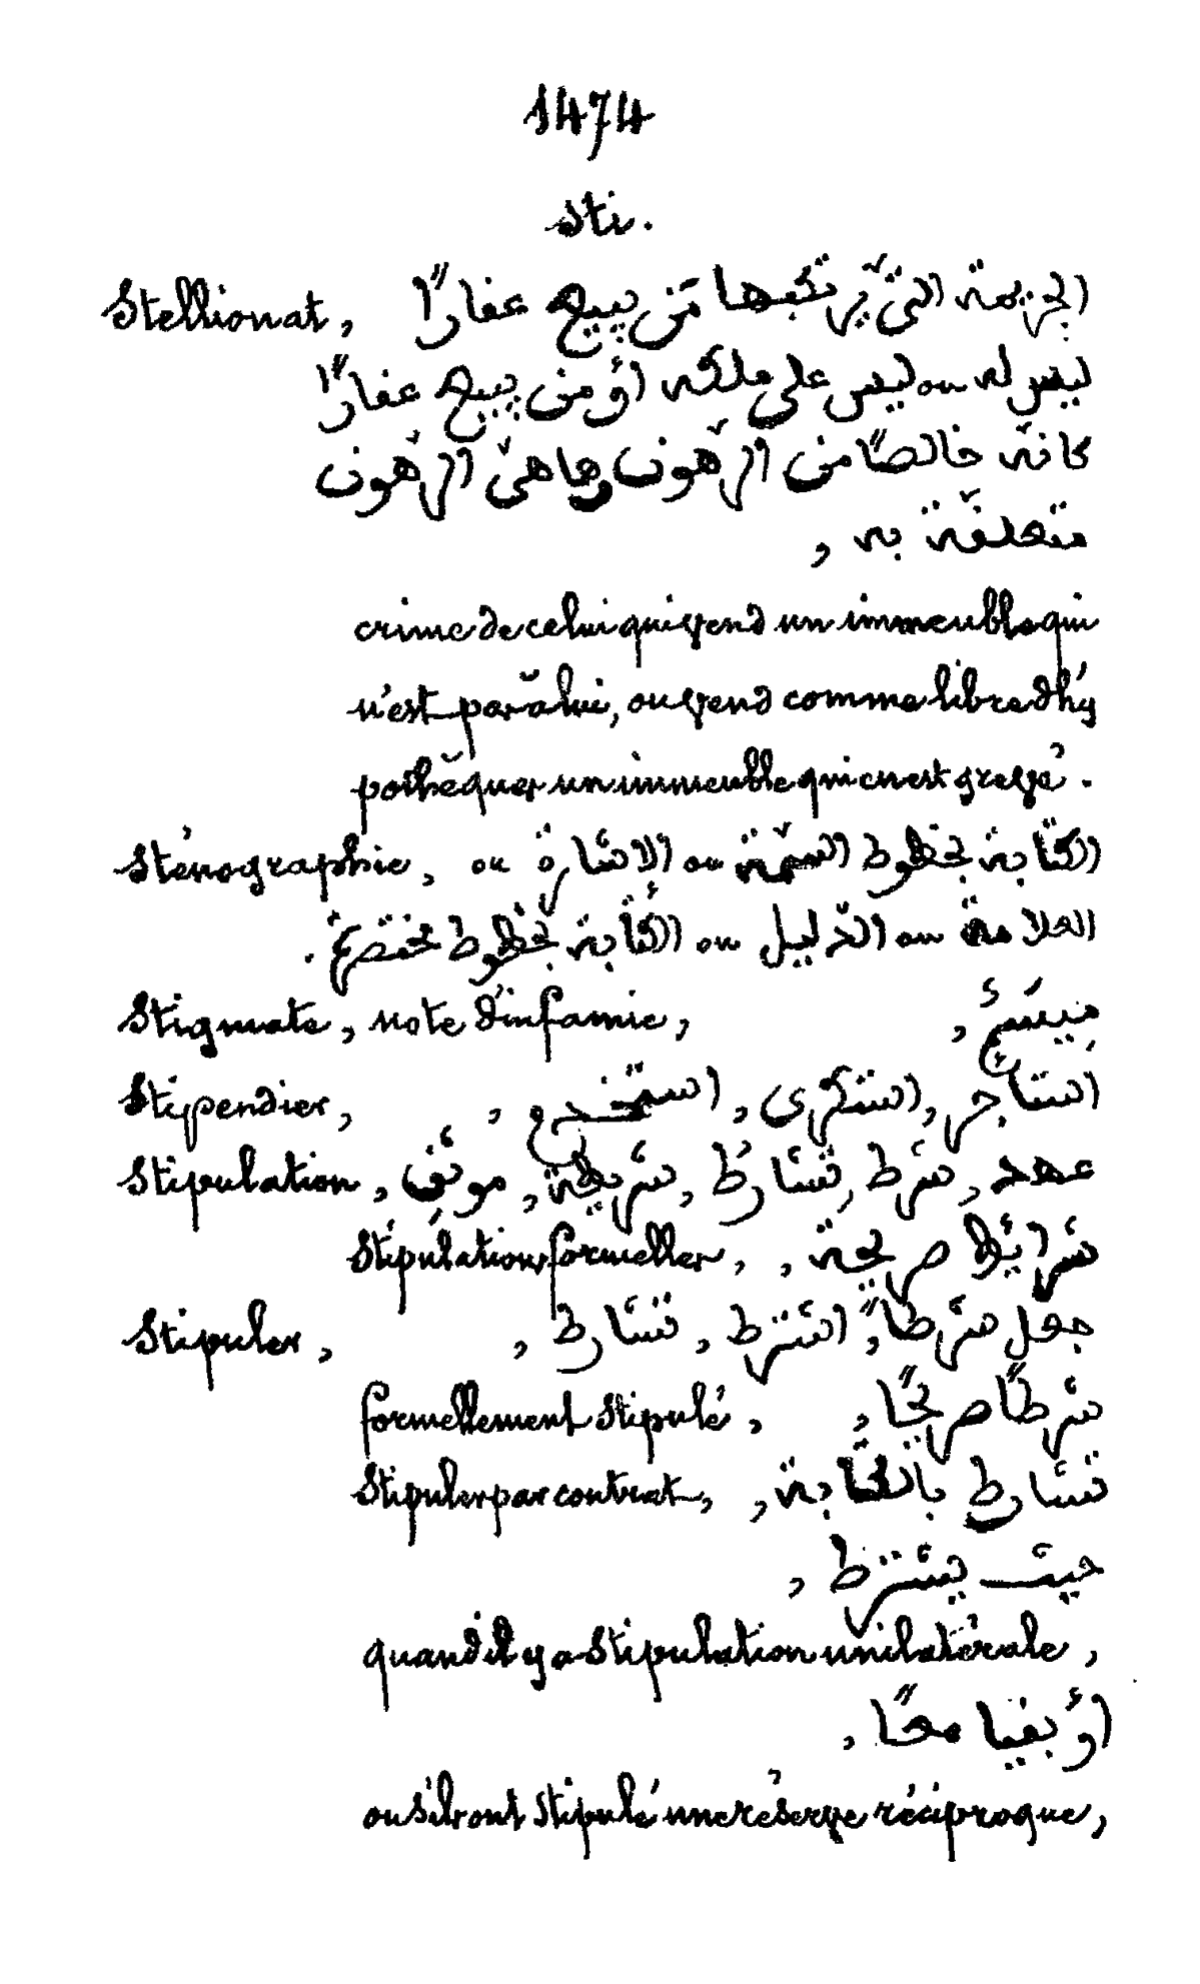 1474
Sti.
Stellionat, الجريمة التّي يرتكبها مَن يبيع عقاراً
ليس له ou ليس على ملكه أو من يبيع عقاراً
كانّه خالصاً من الرّهون وما هى الرّهون
متعلّقة به ,
crime de celui qui vend un immeuble qui
n'est pas à lui, ou vend comme libre d'hy
pothèques un immeuble qui en est grevé.
Sténographie, الكتابة بخطوط السّمة ou الاشارة ou
العلامة ou الدّليل ou الكتابة بخطوط مختصرة .
Stigmate, note d'infamie, مِيسَم ,
Stipendier, استأجر , استكرى , استخدم ,
Stipulation, عهد , شرط , تشارُط , شريطة , موثِق ,
Stipulations formelles, شرايط صريحة ,
Stipuler, جعل شرطاً , اشترط , تشارط ,
formellement stipulé, شرطاً صريحاً ,
Stipuler par contrat, تشارط بالكتابة ,
حيث يشترط ,
quand il y a stipulation unilatérale,
أو بقيا معاً ,
ou s'ils ont stipulé une réserve réciproque,